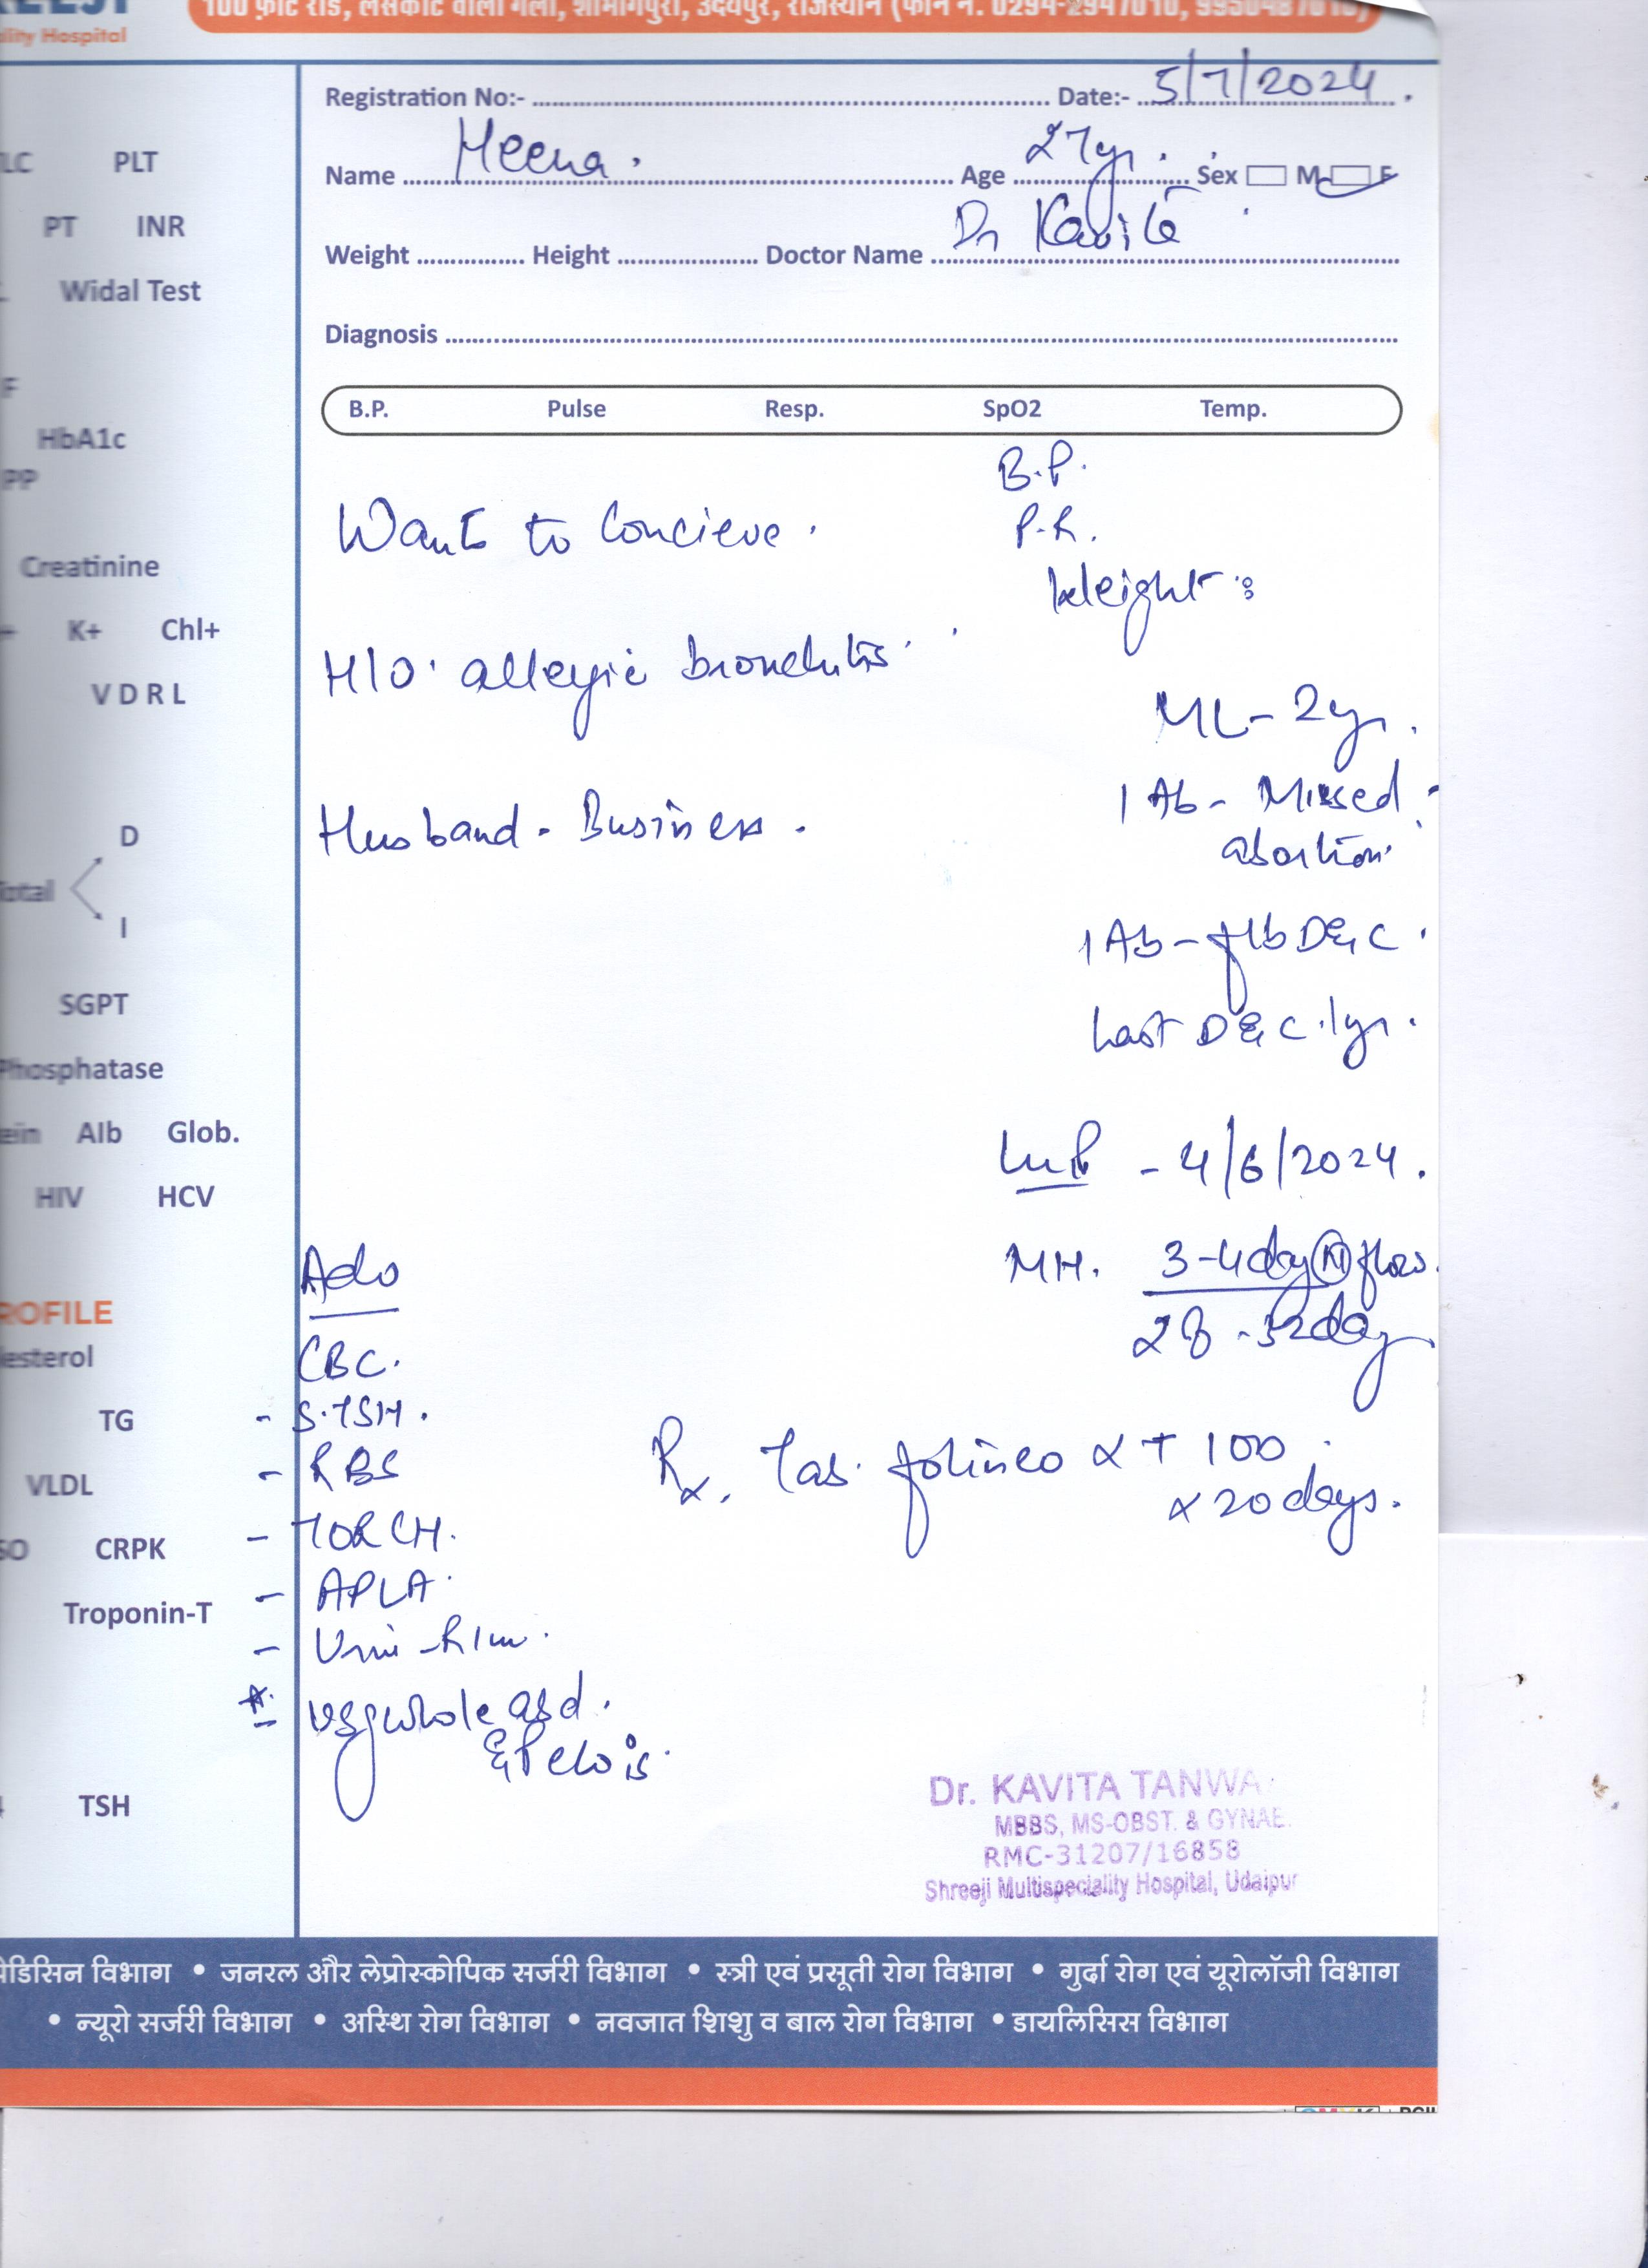 ality Hospital
100 फ़ीट रोड, लेसकोट वाली गली, शोभागपुरा, उदयपुर, राजस्थान
Registration No:- Date:- 5/7/2024.
Name Heena. Age 27yr. Sex M F
Weight Height Doctor Name Dr Kavita
Diagnosis
B.P. Pulse Resp. SpO2 Temp.
B.P.
P.R.
Weight :
Want to Concieve.
H/O. allergic bronchitis.
Husband - Business.
ML- 2yr.
1 Ab - Missed
abortion.
1 Ab - f/b D&C.
Last D&C. 1yr.
LMP - 4/6/2024.
MH. 3-4day N flow.
28-32day
Adv
CBC.
- S.TSH.
- RBS
- TORCH.
- APLA.
- Urine R/M.
* usg whole abd.
& Pelvis.
Rx. Tab. folineo LT 100
x 20 days.
LC PLT
PT INR
Widal Test
F
HbA1c
PP
Creatinine
K+ Chl+
VDRL
D
Total
I
SGPT
Phosphatase
ein Alb Glob.
HIV HCV
ROFILE
lesterol
TG
VLDL
SO CRPK
Troponin-T
TSH
Dr. KAVITA TANWA
MBBS, MS-OBST. & GYNAE.
RMC-31207/16858
Shreeji Multispeciality Hospital, Udaipur
मेडिसिन विभाग • जनरल और लेप्रोस्कोपिक सर्जरी विभाग • स्त्री एवं प्रसूती रोग विभाग • गुर्दा रोग एवं यूरोलॉजी विभाग
• न्यूरो सर्जरी विभाग • अस्थि रोग विभाग • नवजात शिशु व बाल रोग विभाग • डायलिसिस विभाग